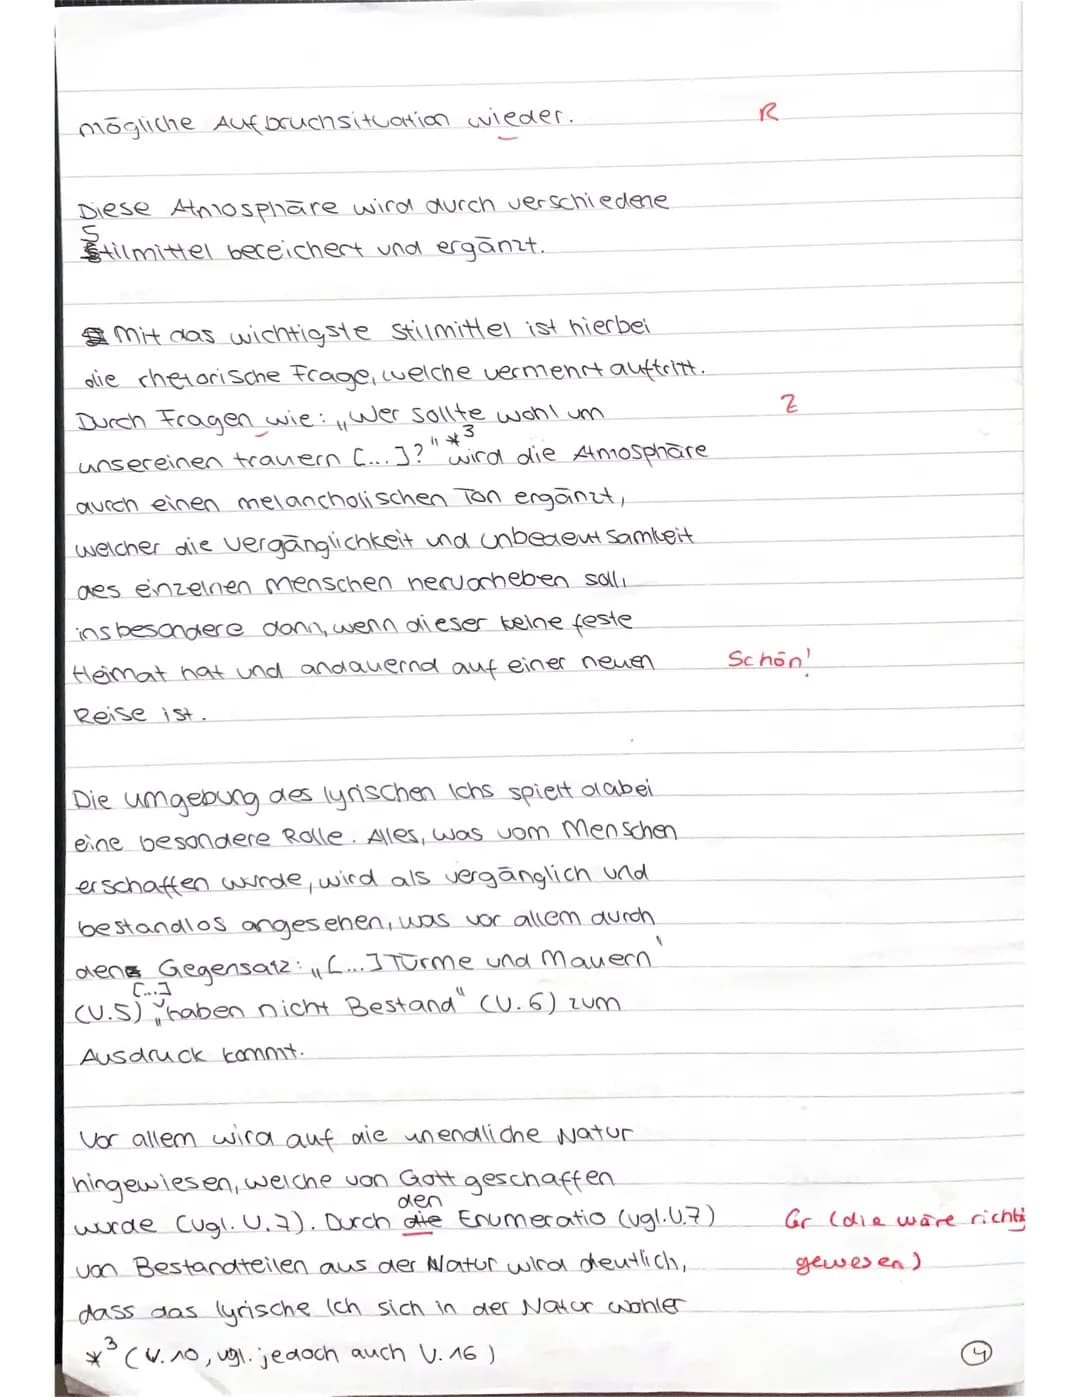 mögliche Aufbruchsituation wieder. R
Diese Atmosphäre wird durch verschiedene
Stilmittel bereichert und ergänzt.
Mit das wichtigste Stilmittel ist hierbei
die rhetorische Frage, welche vermehrt auftritt.
Durch Fragen wie: „Wer sollte wohl um Z
unsereinen trauern [...]?" *3 wird die Atmosphäre
durch einen melancholischen Ton ergänzt,
welcher die Vergänglichkeit und Unbedeutsamkeit
des einzelnen Menschen hervorheben soll,
insbesondere dann, wenn dieser keine feste
Heimat hat und andauernd auf einer neuen Schön!
Reise ist.
Die Umgebung des lyrischen Ichs spielt dabei
eine besondere Rolle. Alles, was vom Menschen
erschaffen wurde, wird als vergänglich und
bestandlos angesehen, was vor allem durch
den Gegensatz: „[...] Türme und Mauern'
(V.5) „[...] haben nicht Bestand" (V.6) zum
Ausdruck kommt.
Vor allem wird auf die unendliche Natur
hingewiesen, welche von Gott geschaffen
wurde (vgl. V.7). Durch die den Enumeratio (vgl. V.7) Gr (die wäre richti
von Bestandteilen aus der Natur wird deutlich, gewesen)
dass das lyrische Ich sich in der Natur wohler
*3 (V.10, vgl. jedoch auch V.16) 4